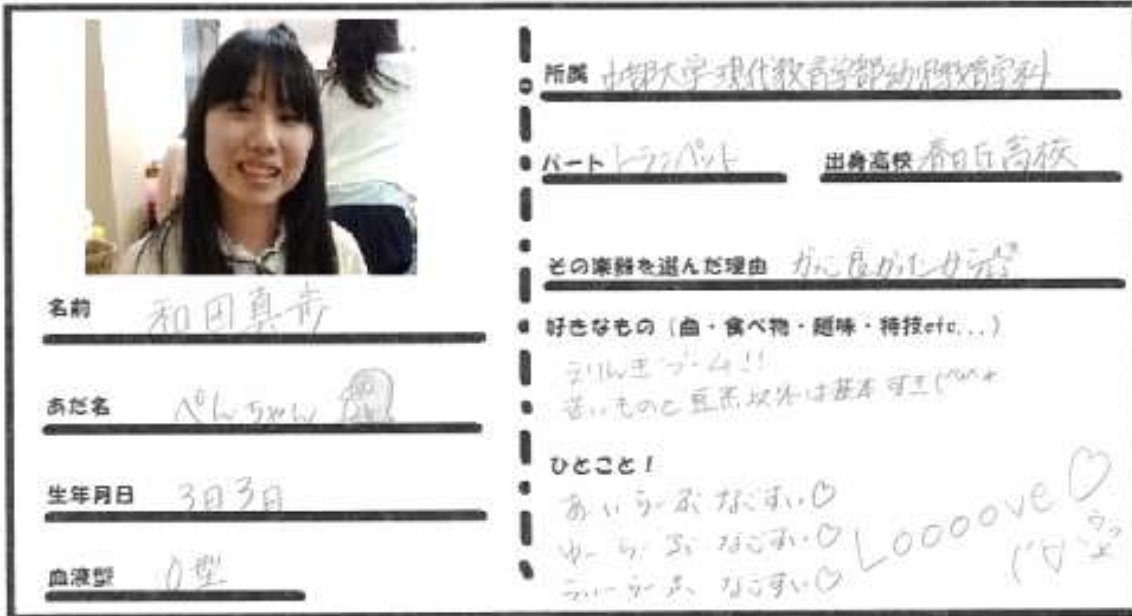 名前 和田真歩
あだ名 ぺんちゃん
生年月日 3月3日
血液型 O型
所属 中部大学現代教育学部幼児教育学科
パート トランペット
出身高校 春日丘高校
その楽器を選んだ理由
好きなもの（曲・食べ物・趣味・特技etc...）
えりんぎブーム!!
苦いものと豆系以外は基本すき
ひとこと！
あいらーぶなごすい♡
ゆーらーぶなごすい♡
うぃーらーぶなごすい♡
Looove♡